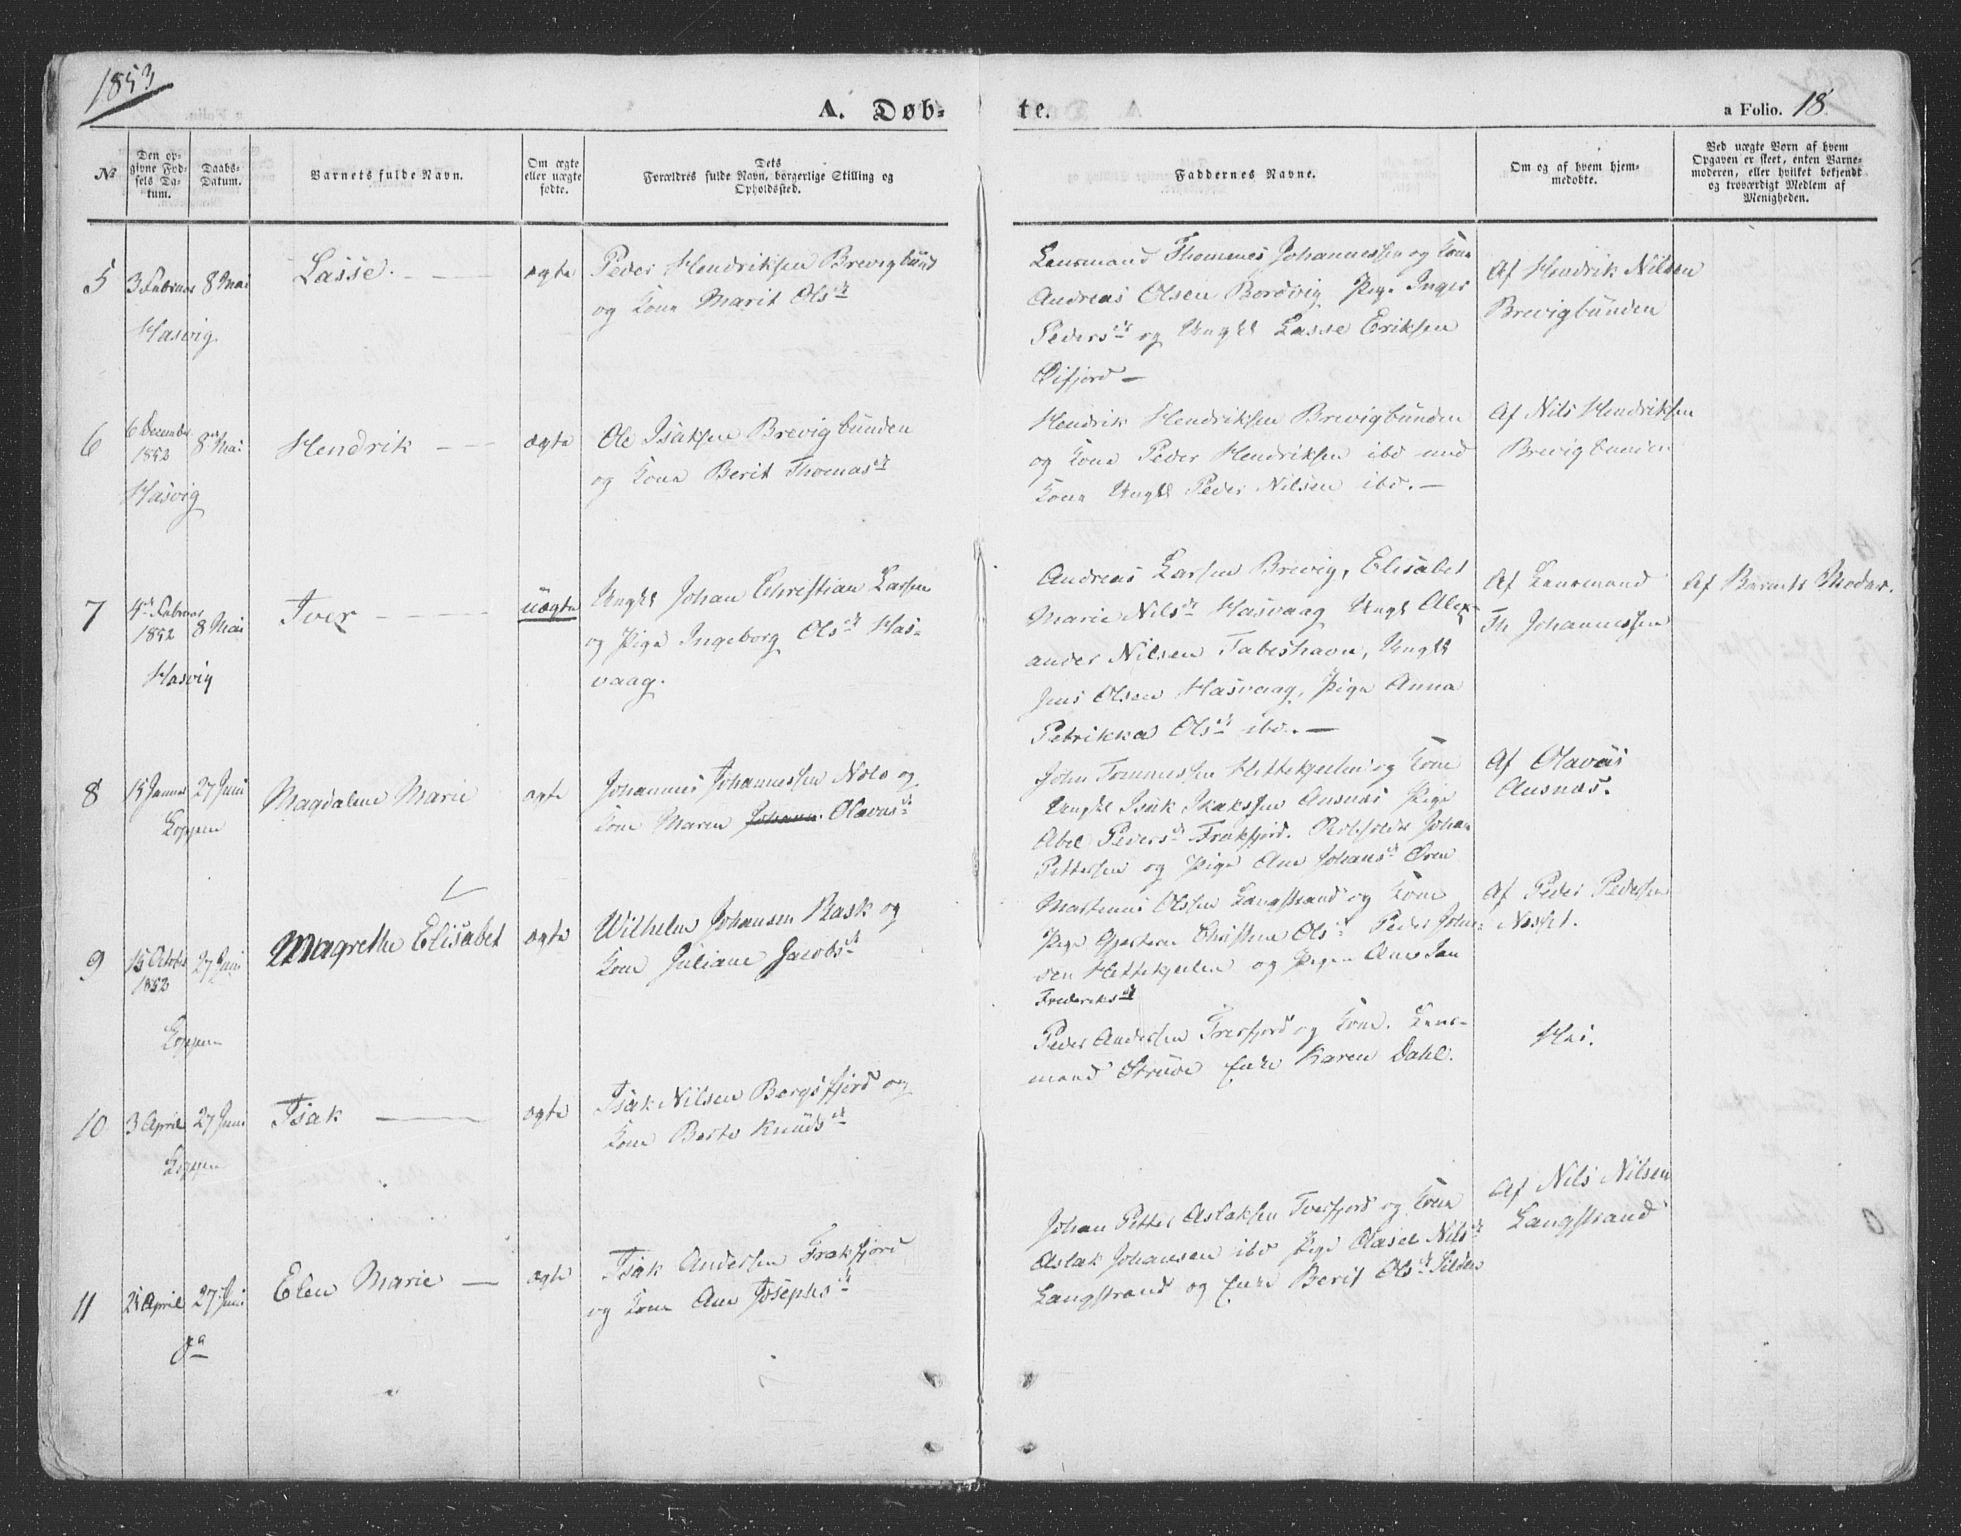 1853
A. Døb-te.
a Folio. 18.
№
Den opgivne Fødsels Datum.
Daabs-Datum.
Barnets fulde Navn.
Om ægte eller uægte fødte.
Dets Forældres fulde Navn, borgerlige Stilling og Opholdssted.
Faddernes Navne.
Om og af hvem hjemmedøbte.
Ved uægte Børn af hvem Opgaven er skeet, enten Barnemoderen, eller hvilket bekjendt og troværdigt Medlem af Menigheden.
5
3 Februar
8 Mai
Hasvig
Lasse.
ægte
Peder Hendriksen Brevigbund
og Kone Marit Olsdr
Lensmand Thommes Johannessen og Kone
Andreas Olsen Bordvig Pige Inger
Pedersdr og Ungkl Lasse Eriksen
Øifjord —
Af Hendrik Nilsen
Brevigbunden
6
6 December
1852
8 Mai
Hasvig
Hendrik
ægte
Ole Isaksen Brevigbunden
og Kone Berit Thomasdr
Hendrik Hendriksen Brevigbunden
og Kone Peder Hendriksen ibd med
Kone Ungkl Peder Nilsen ibd. —
Af Nils Hendriksen
Brevigbunden
7
4de Februar
1852
8 Mai
Hasvig
Iver
uægte
Ungkl Johan Christian Larsen
og Pige Ingeborg Olsdr Has-
vaag.
Andreas Larsen Brevig, Elisabet
Marie Nilsdr Hasvaag Ungk Alex-
ander Nilsen Fabeshavn, Ungkl
Jens Olsen Hasvaag, Pige Anna
Petrikka Olsdr ibd. —
Af Lensmand
Th Johannessen
Af Barnets Moder.
8
15 Januar
27 Juni
Loppen
Magdalene Marie
ægte
Johannes Johannessen Nolo og
Kone Maren Johann. Olavusdr
John Tommessen Hettekjeilen og Kone
Ungkl Isak Isakssen Ausnæs Pige
Abel Pedersdr Frakfjord. Johan
Pettersen og Pige Ane Johansdr Øren
Af Olavus
Ausnæs.
9
15 October
1852
27 Juni
Loppen
Magrethe Elisabet
ægte
Wilhelm Johansen Rask og
Kone Juliane Jacobsdr
Martinus Olssen Langstrand og Kone
Pige Christine Olsdr Peder John-
sen Hettekjeilen og Pigen Ane Jan
Frederiksdr
Af Peder Pedersen
Næsset.
10
3 April
27 Juni
Loppen
Isak
ægte
Isak Nilsen Bergsfjord og
Kone Berte Knudsdr
Peder Andersen og Kone. Lens-
mand Struve Enke Karen Dahl.
Nei.
11
21 April
27 Juni
da
Elen Marie —
ægte
Isak Andersen Frakfjord
og Kone Ane Josephsdr
Johan Petter Aslaksen Tverfjord og Kone
Aslak Johansen ibd Pige Olasel Nilsdr
Langstrand og Enke Berit Olsdr Silden
Af Nils Nilsen
Langstrand